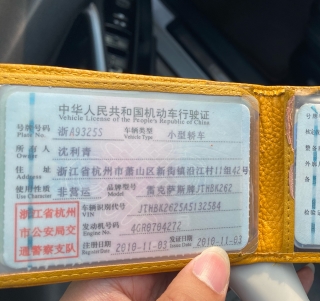 中华人民共和国机动车行驶证
Vehicle License of the People's Republic of China
号牌号码 浙A93Z55 车辆类型 小型轿车
Plate No. Vehicle Type
所有人 沈利青
Owner
住址 浙江省杭州市萧山区新街镇沿江村11组42号
Address
使用性质 非营运 品牌型号 雷克萨斯牌JTHBK262
Use Character Model
浙江省杭州
市公安局交
通警察支队
车辆识别代号 JTHBK2625A5132584
VIN
发动机号码 4GR0704272
Engine No.
注册日期 2010-11-03 发证日期 2010-11-03
Register Date Issue Date